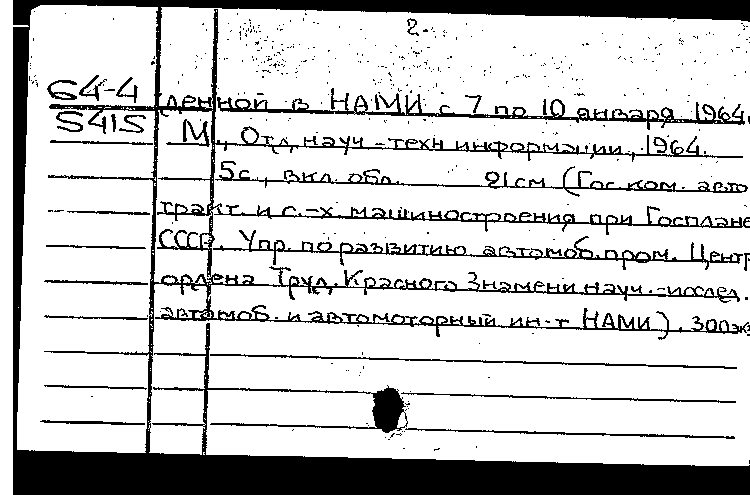 2.
64-4 денной в НАМИ с 7 по 10 января 1964.
5415 М., Отд. науч-техн информации, 1964.
5с., вкл. обл. 21см (Гос. ком. авто
тракт. и с.-х. машиностроения при Госплане
СССР. Упр. по развитию автомоб. пром. Центр
ордена Труд. Красного Знамени науч.-исслед.
автомоб. и автомоторный ин-т НАМИ). 300экз